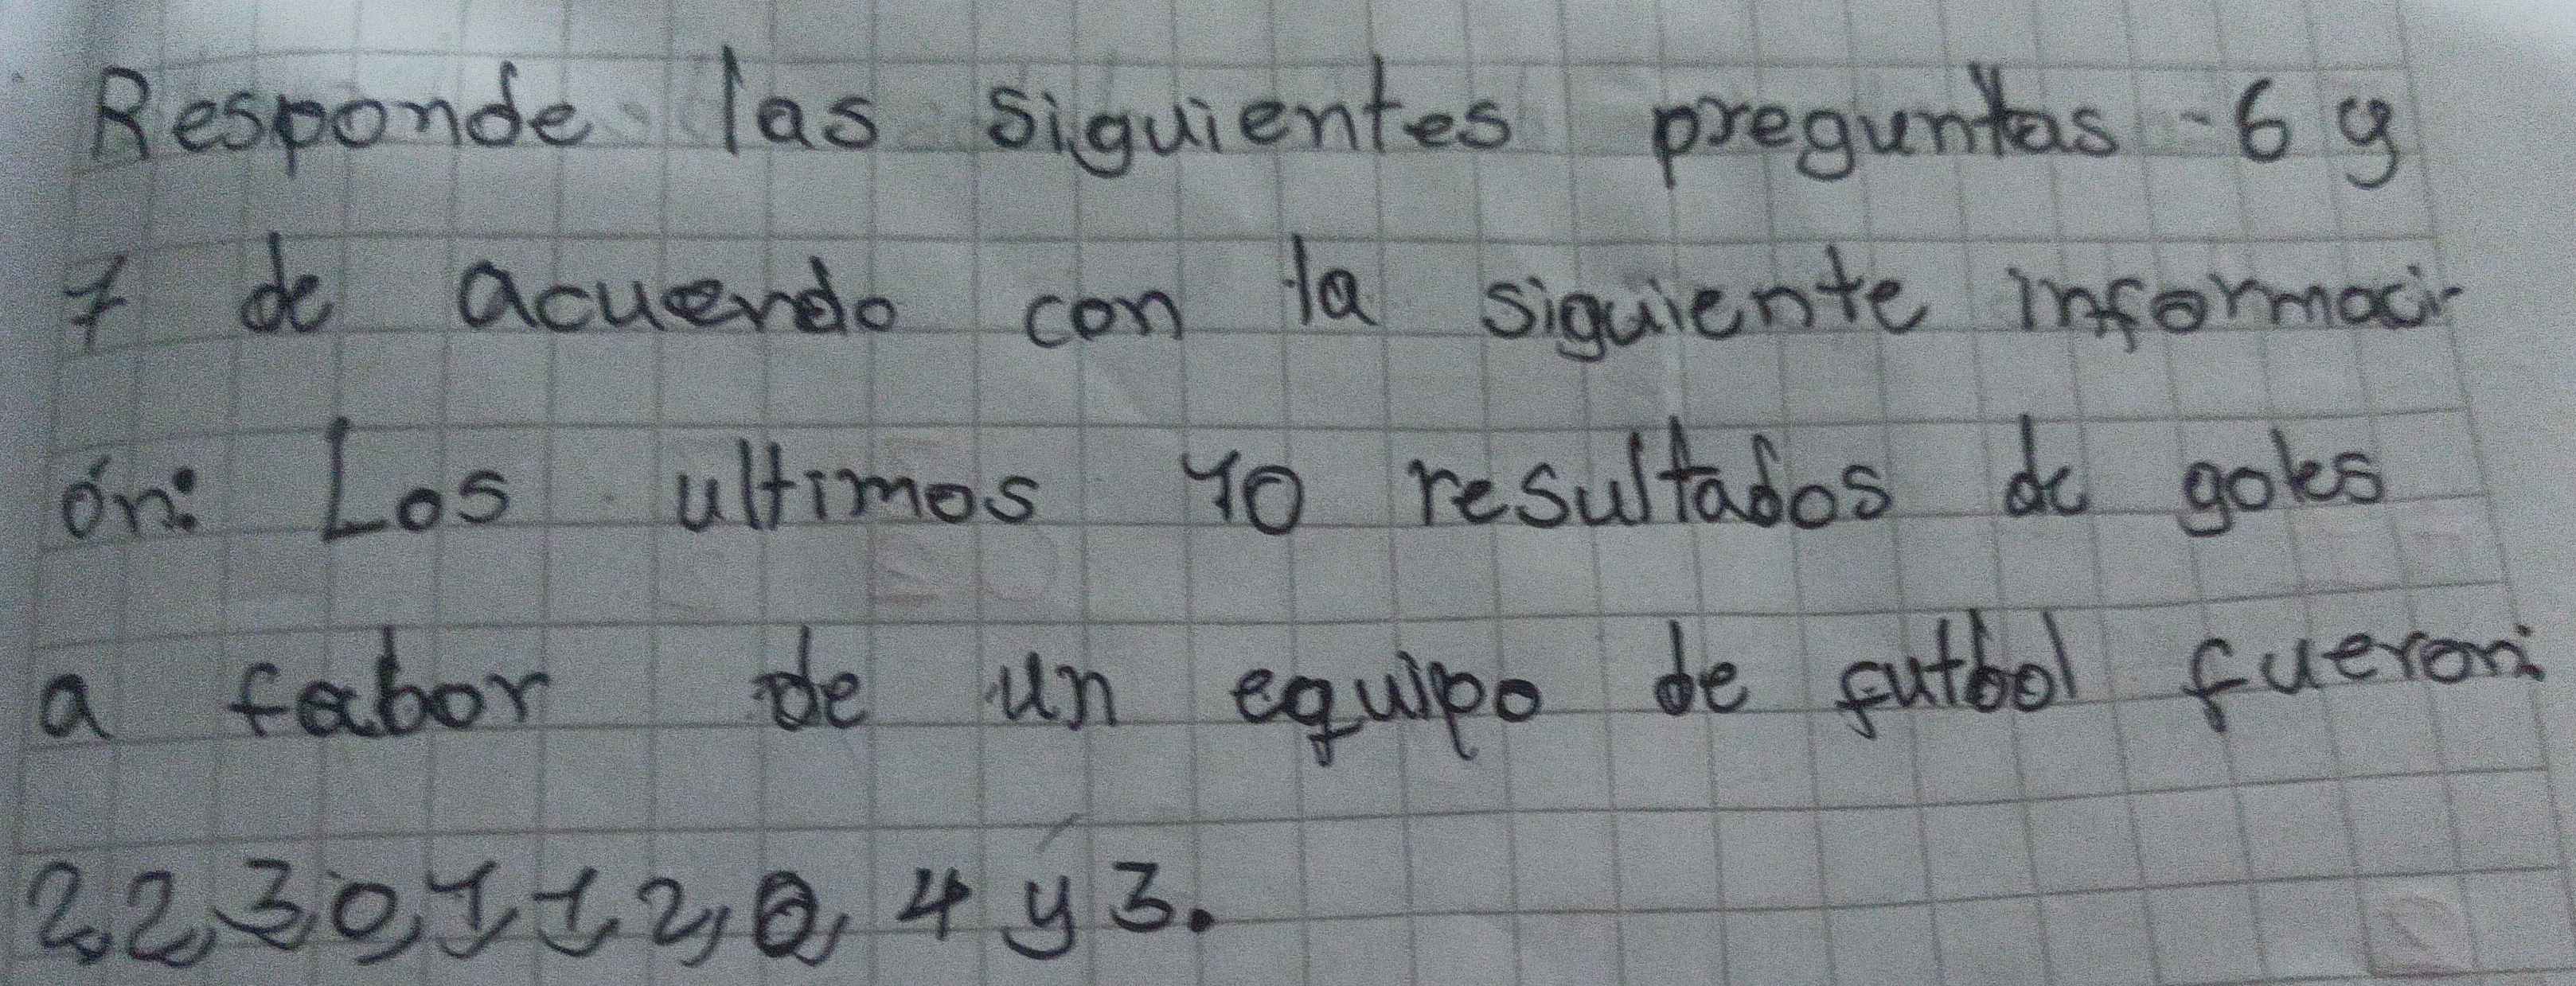 Responde las siguientes preguntas - 6 y
7 de acuerdo con la siguiente informaci-
ón: Los ultimos 10 resultados de goles
a fabor de un equipo de futbol fueron:
2, 2, 3, 0, 1, 1, 2, 0, 4 y 3.